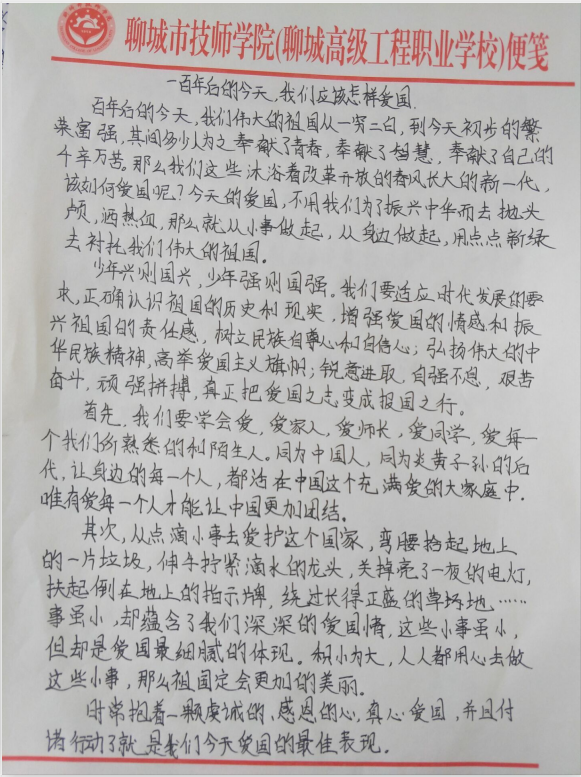 聊城市技师学院(聊城高级工程职业学校)便笺
一百年后的今天,我们应该怎样爱国.
百年后的今天,我们伟大的祖国从一穷二白,到今天初步的繁
荣富强,其间多少人为之奉献了青春,奉献了智慧,奉献了自己的
千辛万苦。那么我们这些沐浴着改革开放的春风长大的新一代,
该如何爱国呢?今天的爱国,不用我们为了振兴中华而去抛头
颅,洒热血,那么就从小事做起,从身边做起,用点点新绿
去衬托我们伟大的祖国。
少年兴则国兴,少年强则国强。我们要适应时代发展的要
求,正确认识祖国的历史和现实,增强爱国的情感和振
兴祖国的责任感,树立民族自尊心和自信心;弘扬伟大的中
华民族精神,高举爱国主义旗帜;锐意进取,自强不息,艰苦
奋斗,顽强拼搏,真正把爱国之志变成报国之行。
首先,我们要学会爱,爱家人,爱师长,爱同学,爱每一
个我们所熟悉的和陌生人。同为中国人,同为炎黄子孙的后
代,让身边的每一个人,都活在中国这个充满爱的大家庭中.
唯有爱每一个人才能让中国更加团结。
其次,从点滴小事去爱护这个国家,弯腰拾起地上
的一片垃圾,伸手拧紧滴水的龙头,关掉亮了一夜的电灯,
扶起倒在地上的指示牌,绕过长得正盛的草场地……
事虽小,却蕴含了我们深深的爱国情,这些小事虽小,
但却是爱国最细腻的体现。积小为大,人人都用心去做
这些小事,那么祖国定会更加的美丽.
时常抱着一颗虔诚的,感恩的心,真心爱国,并且付
诸行动了就是我们今天爱国的最佳表现.